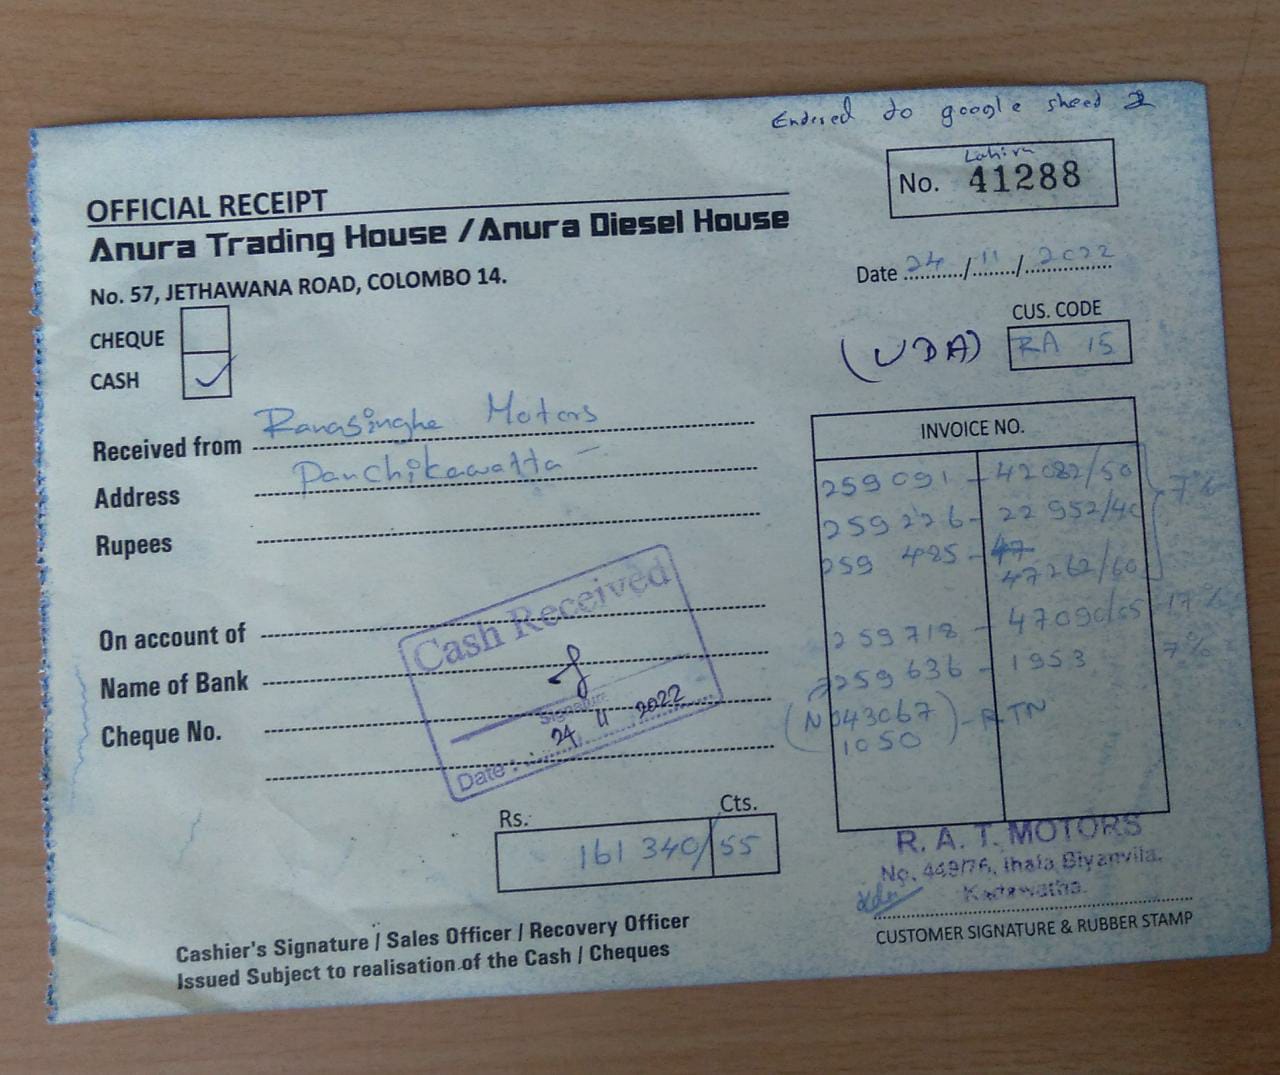 Endered to google sheed
Lahiru
No. 41288
OFFICIAL RECEIPT
Anura Trading House / Anura Diesel House
No. 57, JETHAWANA ROAD, COLOMBO 14.
Date 24/11/2022
CHEQUE
CASH ✓
CUS. CODE
(UDA) RA 15
Received from Ranasinghe Motors
Address Panchikawatta
Rupees
On account of
Name of Bank
Cheque No.
INVOICE NO.
259091 - 42082/50
7%
259226 - 22952/40
259 485 - 47
47262/60
259718 - 47090/55 17%
259636 - 1953 7%
(N043067) - RTN
1050
Cash Received
Signature
Date : 24 11 2022
Rs. Cts.
161 340/55
R. A. T. MOTORS
No. 449/76, Ihala Biyanvila,
Kadawatha.
CUSTOMER SIGNATURE & RUBBER STAMP
Cashier's Signature / Sales Officer / Recovery Officer
Issued Subject to realisation of the Cash / Cheques